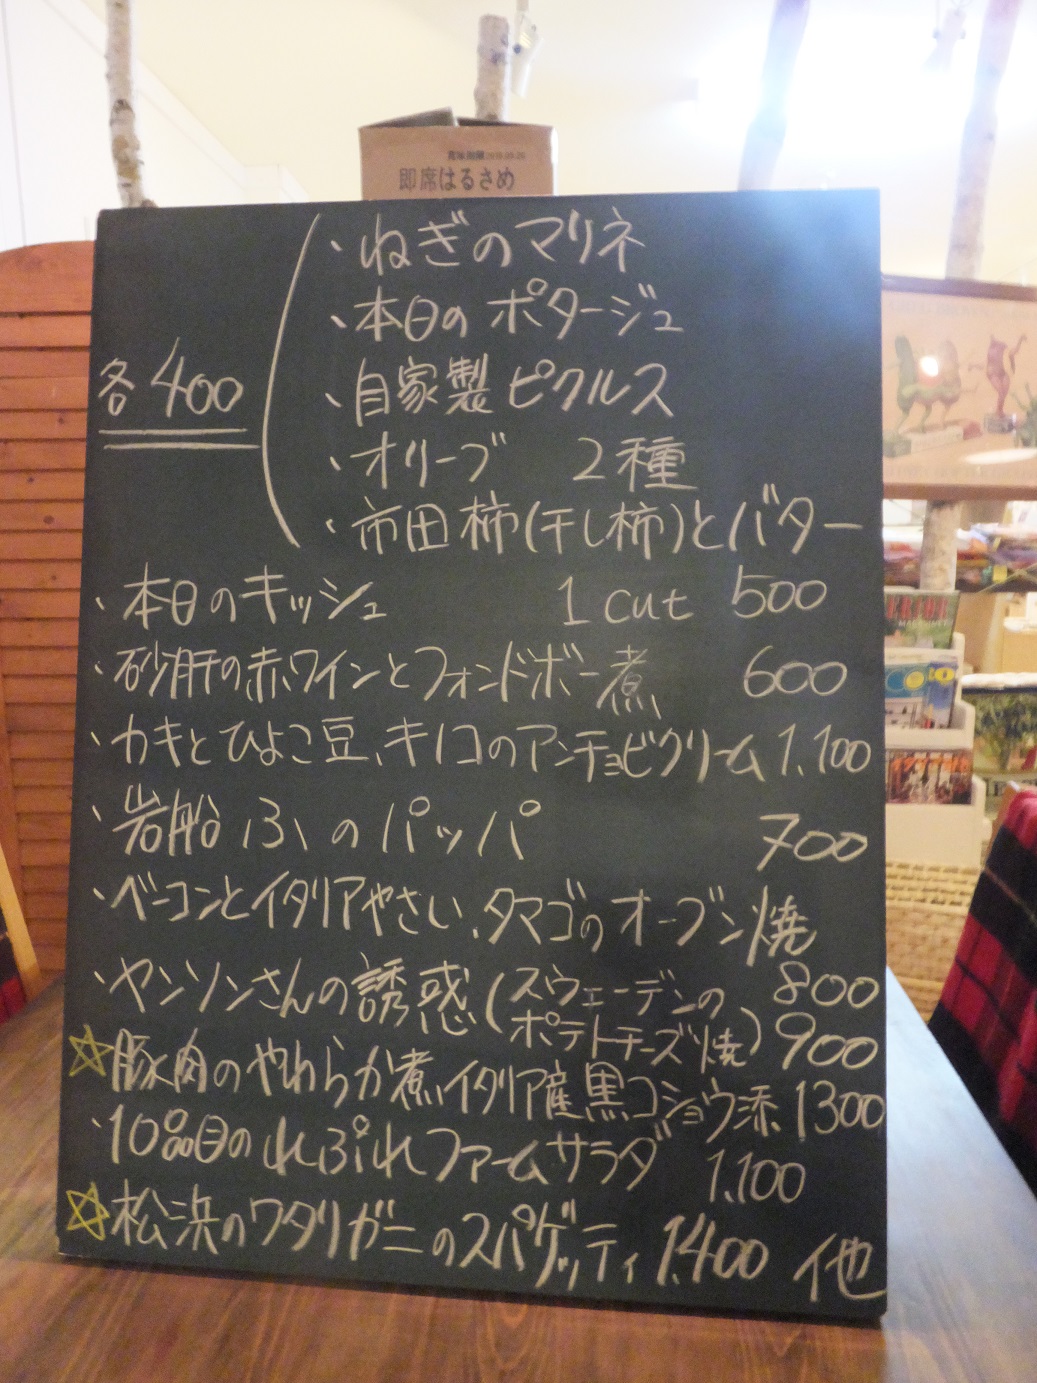 賞味期限
即席はるさめ
各400
・ねぎのマリネ
・本日のポタージュ
・自家製ピクルス
・オリーブ 2種
・市田柿(干し柿)とバター
・本日のキッシュ 1cut 500
・砂肝の赤ワインとフォンドボー煮 600
・カキとひよこ豆、キノコのアンチョビクリーム 1,100
・岩船ふのパッパ 700
・ベーコンとイタリアやさい、タマゴのオーブン焼 800
・ヤンソンさんの誘惑(スウェーデンの
ポテトチーズ焼) 900
☆豚肉のやわらか煮、イタリア産黒コショウ添 1300
・10品目のれぷれファームサラダ 1,100
☆松浜のワタリガニのスパゲッティ 1,400 他